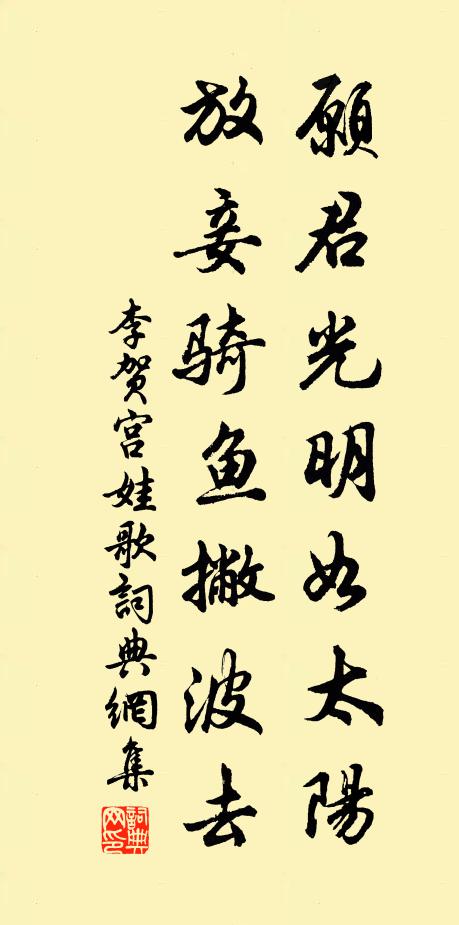 願君光明如太陽
放妾骑鱼撇波去
李贺宫娃歌詞典網集
詞典网印